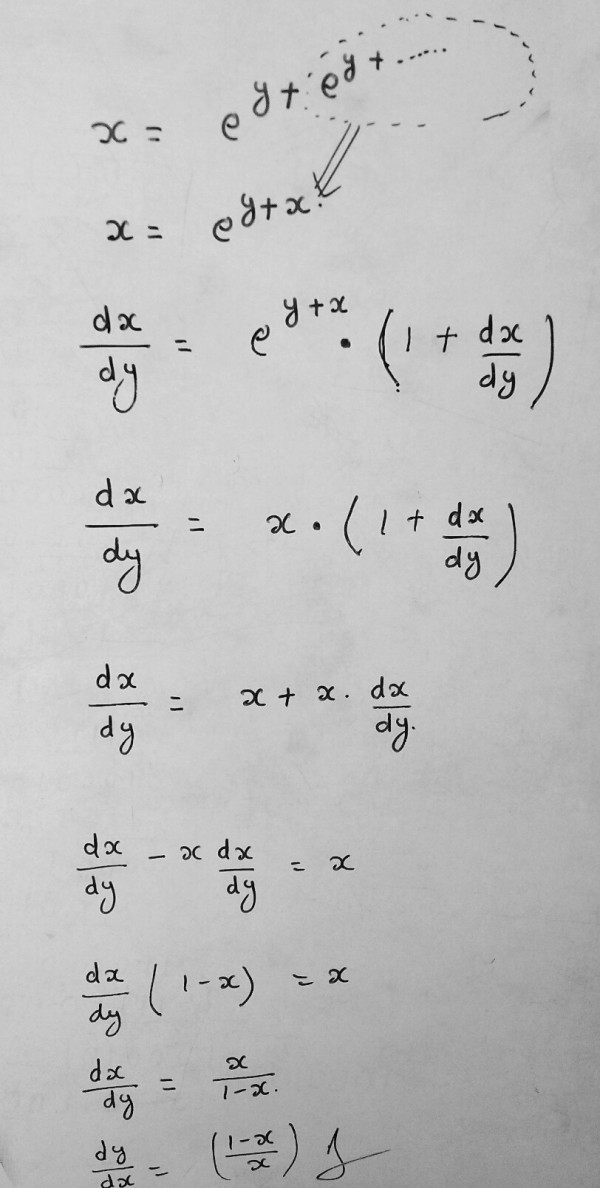 x = e^{y + e^{y + ......}}
x = e^{y+x}
dx/dy = e^{y+x} · (1 + dx/dy)
dx/dy = x · (1 + dx/dy)
dx/dy = x + x · dx/dy
dx/dy - x dx/dy = x
dx/dy (1-x) = x
dx/dy = x/(1-x)
dy/dx = ((1-x)/x)